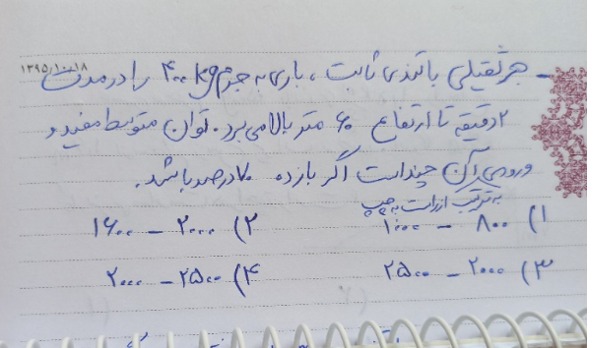 ۱۳۹۵/۱۰/۱۸
- جرثقیلی با تندی ثابت ، باری به جرم ۴۰۰ kg را در مدت
۲ دقیقه تا ارتفاع ۶۰ متر بالا می‌برد. توان متوسط مفید و
ورودی آن چند است اگر بازده ۸۰ درصد باشد.
به ترتیب از راست به چپ
۱) ۸۰۰ - ۱۰۰۰ ۲) ۲۰۰۰ - ۱۶۰۰
۳) ۲۰۰۰ - ۲۵۰۰ ۴) ۲۵۰۰ - ۲۰۰۰